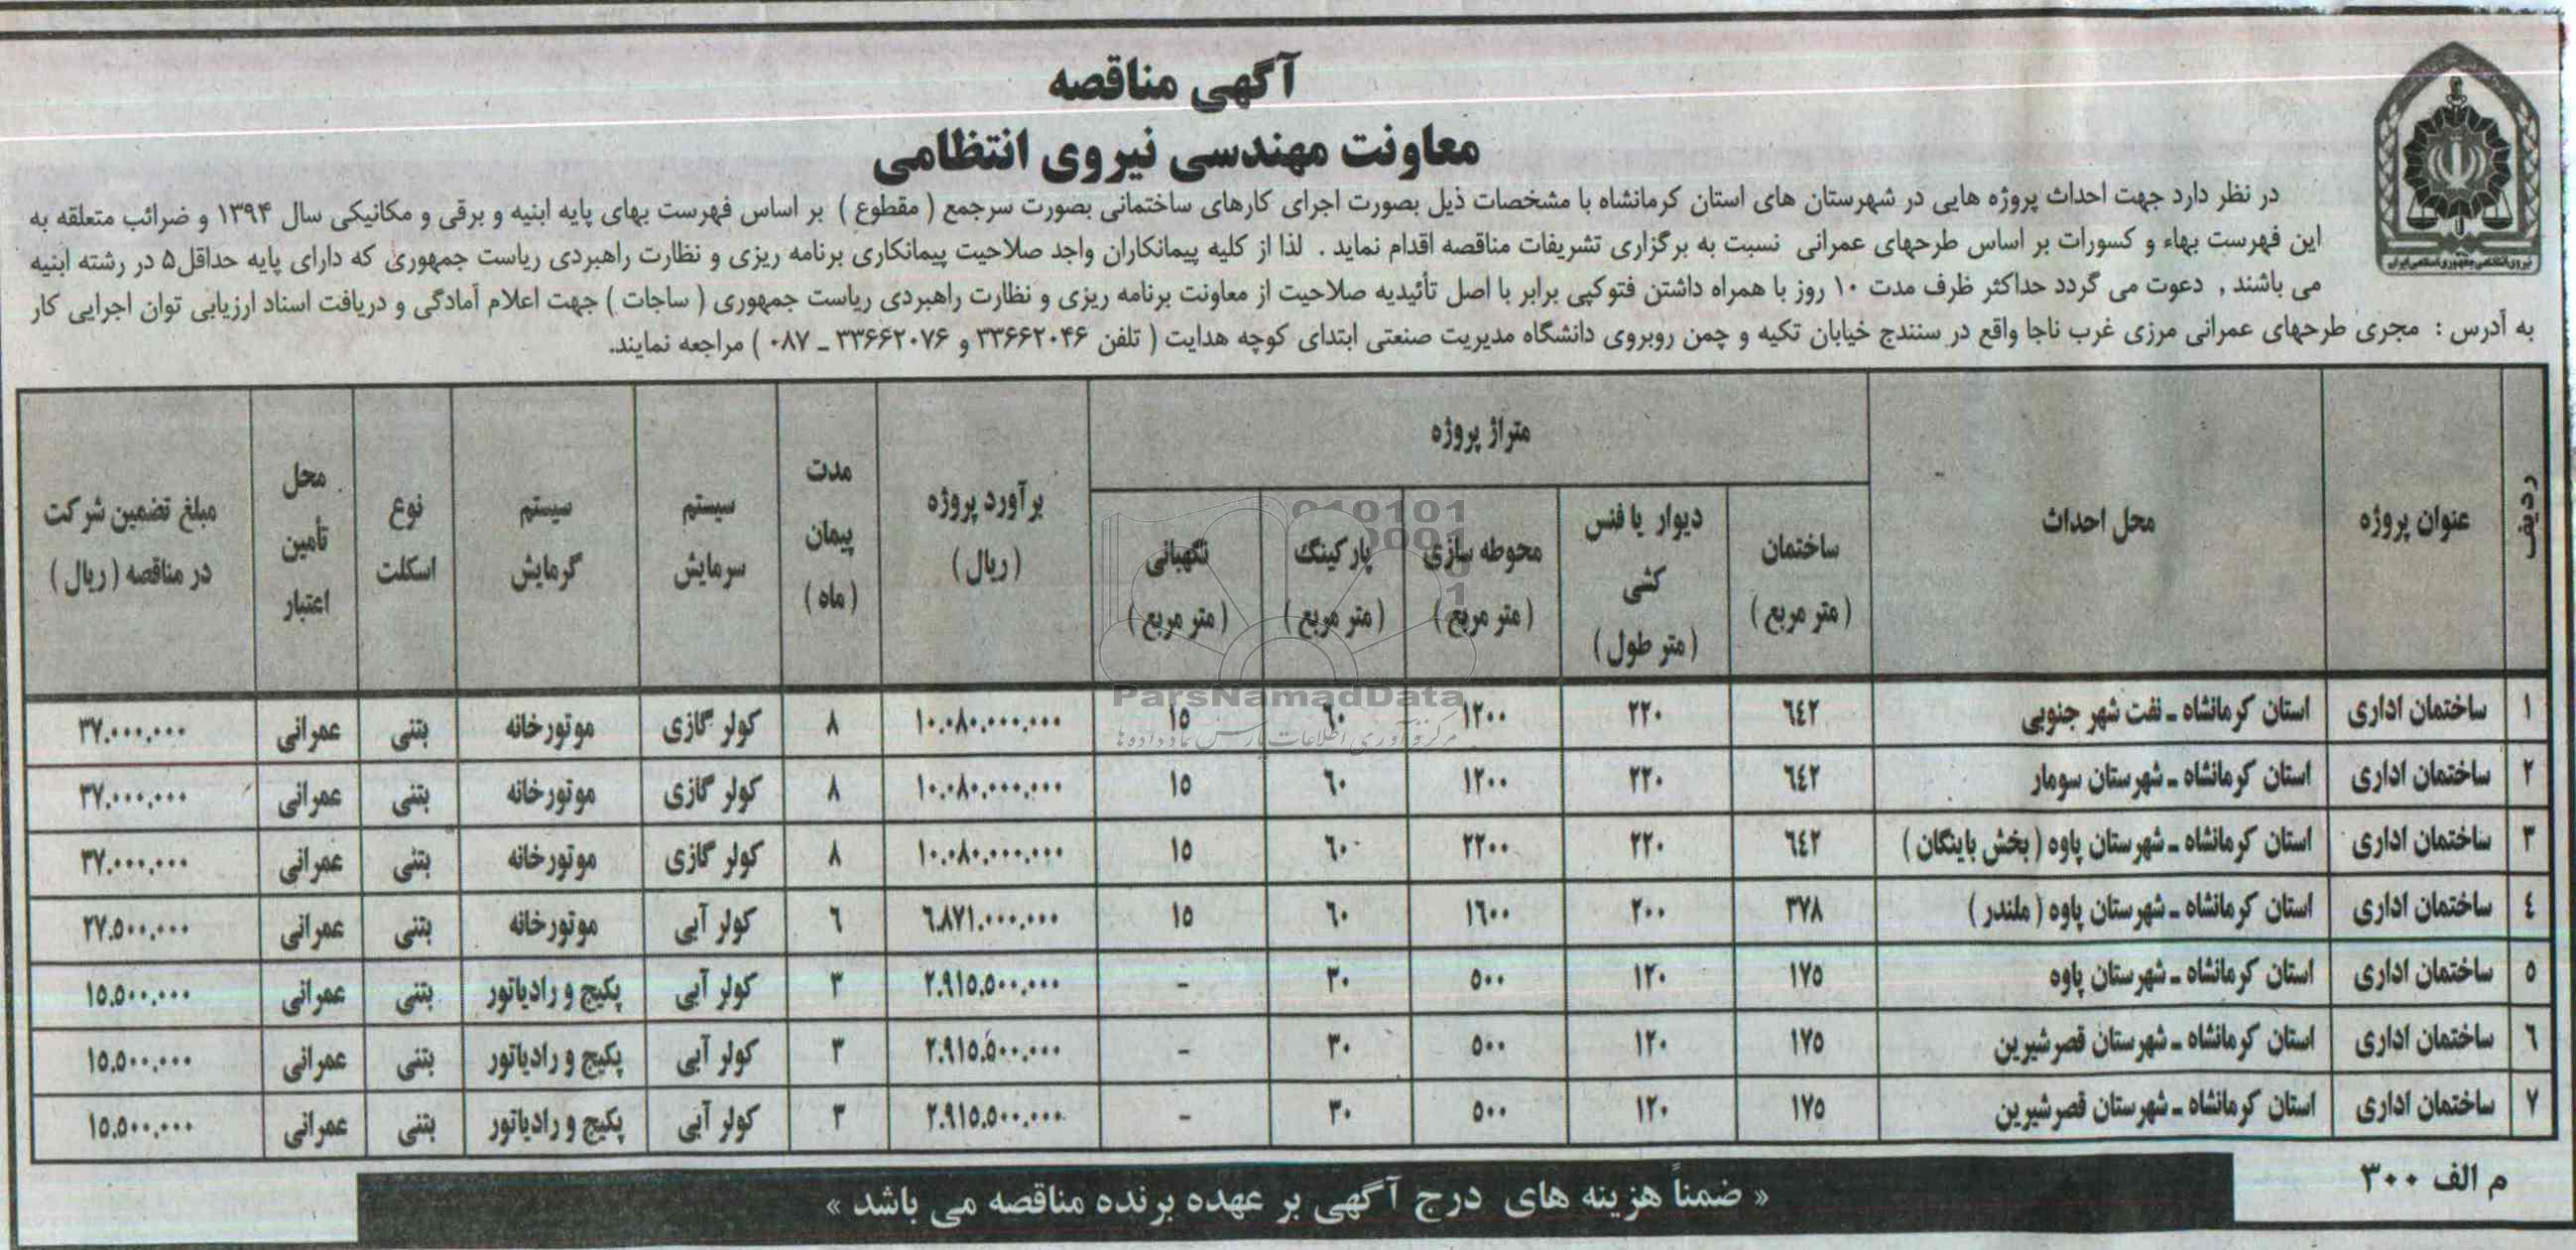 آگهی مناقصه
معاونت مهندسی نیروی انتظامی
نیروی انتظامی جمهوری اسلامی ایران
در نظر دارد جهت احداث پروژه هایی در شهرستان های استان کرمانشاه با مشخصات ذیل بصورت اجرای کارهای ساختمانی بصورت سرجمع ( مقطوع ) بر اساس فهرست بهای پایه ابنیه و برقی و مکانیکی سال ۱۳۹۴ و ضرائب متعلقه به
این فهرست بهاء و کسورات بر اساس طرحهای عمرانی نسبت به برگزاری تشریفات مناقصه اقدام نماید . لذا از کلیه پیمانکاران واجد صلاحیت پیمانکاری برنامه ریزی و نظارت راهبردی ریاست جمهوری که دارای پایه حداقل۵ در رشته ابنیه
می باشند , دعوت می گردد حداکثر ظرف مدت ۱۰ روز با همراه داشتن فتوکپی برابر با اصل تأئیدیه صلاحیت از معاونت برنامه ریزی و نظارت راهبردی ریاست جمهوری ( ساجات ) جهت اعلام آمادگی و دریافت اسناد ارزیابی توان اجرایی کار
به آدرس : مجری طرحهای عمرانی مرزی غرب ناجا واقع در سنندج خیابان تکیه و چمن روبروی دانشگاه مدیریت صنعتی ابتدای کوچه هدایت ( تلفن ۳۳۶۶۲۰۴۶ و ۳۳۶۶۲۰۷۶ ـ ۰۸۷ ) مراجعه نمایند.
ردیف عنوان پروژه محل احداث متراژ پروژه برآورد پروژه (ریال) مدت پیمان (ماه) سیستم سرمایش سیستم گرمایش نوع اسکلت محل تأمین اعتبار مبلغ تضمین شرکت در مناقصه (ریال)
ساختمان (متر مربع) دیوار یا فنس کشی (متر طول) محوطه سازی (متر مربع) پارکینگ (متر مربع) نگهبانی (متر مربع)
۱ ساختمان اداری استان کرمانشاه ـ نفت شهر جنوبی ٦٤٢ ۲۲۰ ۱۲۰۰ ٦۰ ۱۵ ۱۰.۰۸۰.۰۰۰.۰۰۰ ۸ کولر گازی موتورخانه بتنی عمرانی ۳۷.۰۰۰.۰۰۰
۲ ساختمان اداری استان کرمانشاه ـ شهرستان سومار ٦٤٢ ۲۲۰ ۱۲۰۰ ٦۰ ۱۵ ۱۰.۰۸۰.۰۰۰.۰۰۰ ۸ کولر گازی موتورخانه بتنی عمرانی ۳۷.۰۰۰.۰۰۰
۳ ساختمان اداری استان کرمانشاه ـ شهرستان پاوه ( بخش باینگان ) ٦٤٢ ۲۲۰ ۲۲۰۰ ٦۰ ۱۵ ۱۰.۰۸۰.۰۰۰.۰۰۰ ۸ کولر گازی موتورخانه بتنی عمرانی ۳۷.۰۰۰.۰۰۰
٤ ساختمان اداری استان کرمانشاه ـ شهرستان پاوه ( ملندر ) ۳۷۸ ۲۰۰ ۱٦۰۰ ٦۰ ۱۵ ٦.۸۷۱.۰۰۰.۰۰۰ ٦ کولر آبی موتورخانه بتنی عمرانی ۲۷.۵۰۰.۰۰۰
۵ ساختمان اداری استان کرمانشاه ـ شهرستان پاوه ۱۷۵ ۱۲۰ ۵۰۰ ۳۰ - ۲.۹۱۵.۵۰۰.۰۰۰ ۳ کولر آبی پکیج و رادیاتور بتنی عمرانی ۱۵.۵۰۰.۰۰۰
٦ ساختمان اداری استان کرمانشاه ـ شهرستان قصرشیرین ۱۷۵ ۱۲۰ ۵۰۰ ۳۰ - ۲.۹۱۵.۵۰۰.۰۰۰ ۳ کولر آبی پکیج و رادیاتور بتنی عمرانی ۱۵.۵۰۰.۰۰۰
۷ ساختمان اداری استان کرمانشاه ـ شهرستان قصرشیرین ۱۷۵ ۱۲۰ ۵۰۰ ۳۰ - ۲.۹۱۵.۵۰۰.۰۰۰ ۳ کولر آبی پکیج و رادیاتور بتنی عمرانی ۱۵.۵۰۰.۰۰۰
ParsNamadData
مرکز فرآوری اطلاعات پارس نماد داده ها
م الف ۳۰۰
« ضمناً هزینه های درج آگهی بر عهده برنده مناقصه می باشد »